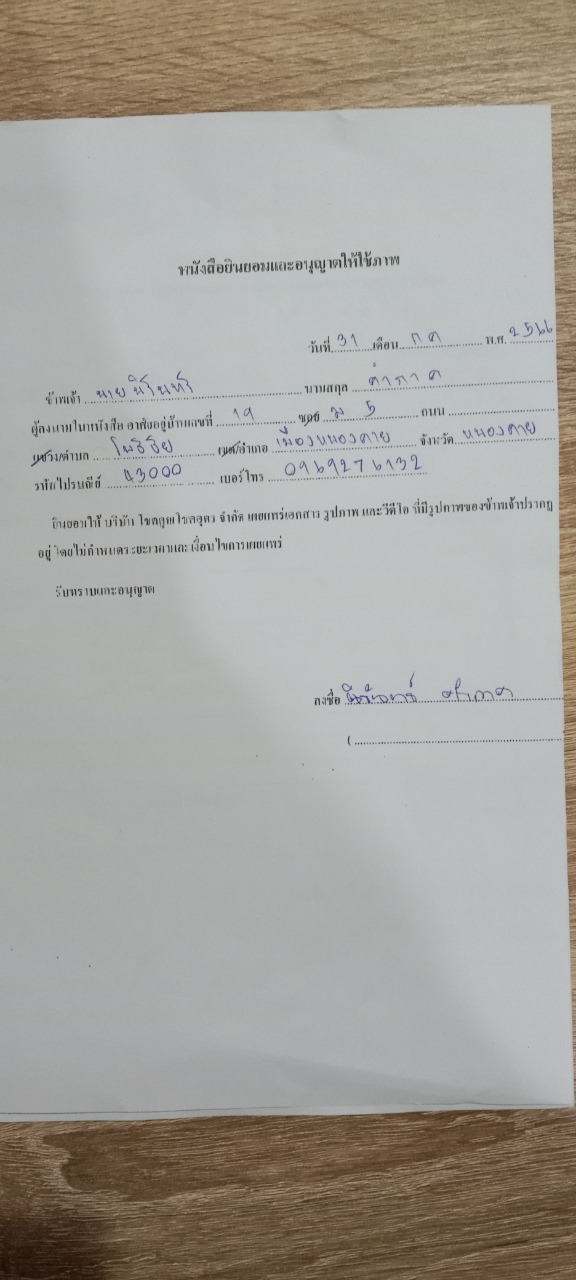 หนังสือยินยอมและอนุญาตให้ใช้ภาพ
วันที่ 31 เดือน ก ค พ.ศ. 2566
ข้าพเจ้า นาย นามสกุล คำภาค
ผู้ลงนามในหนังสือ อาศัยอยู่บ้านเลขที่ 19 ซอย ม 5 ถนน
แขวง/ตำบล โพธิ์ชัย เขต/อำเภอ เมืองหนองคาย จังหวัด หนองคาย
รหัสไปรษณีย์ 43000 เบอร์โทร 0969276132
ยินยอมให้ บริษัท โชคคูณโชคอุดร จำกัด เผยแพร่เอกสาร รูปภาพ และวีดีโอ ที่มีรูปภาพของข้าพเจ้าปรากฏ
อยู่ โดยไม่กำหนดระยะเวลาและ เงื่อนไขการเผยแพร่
รับทราบและอนุญาต
ลงชื่อ
(